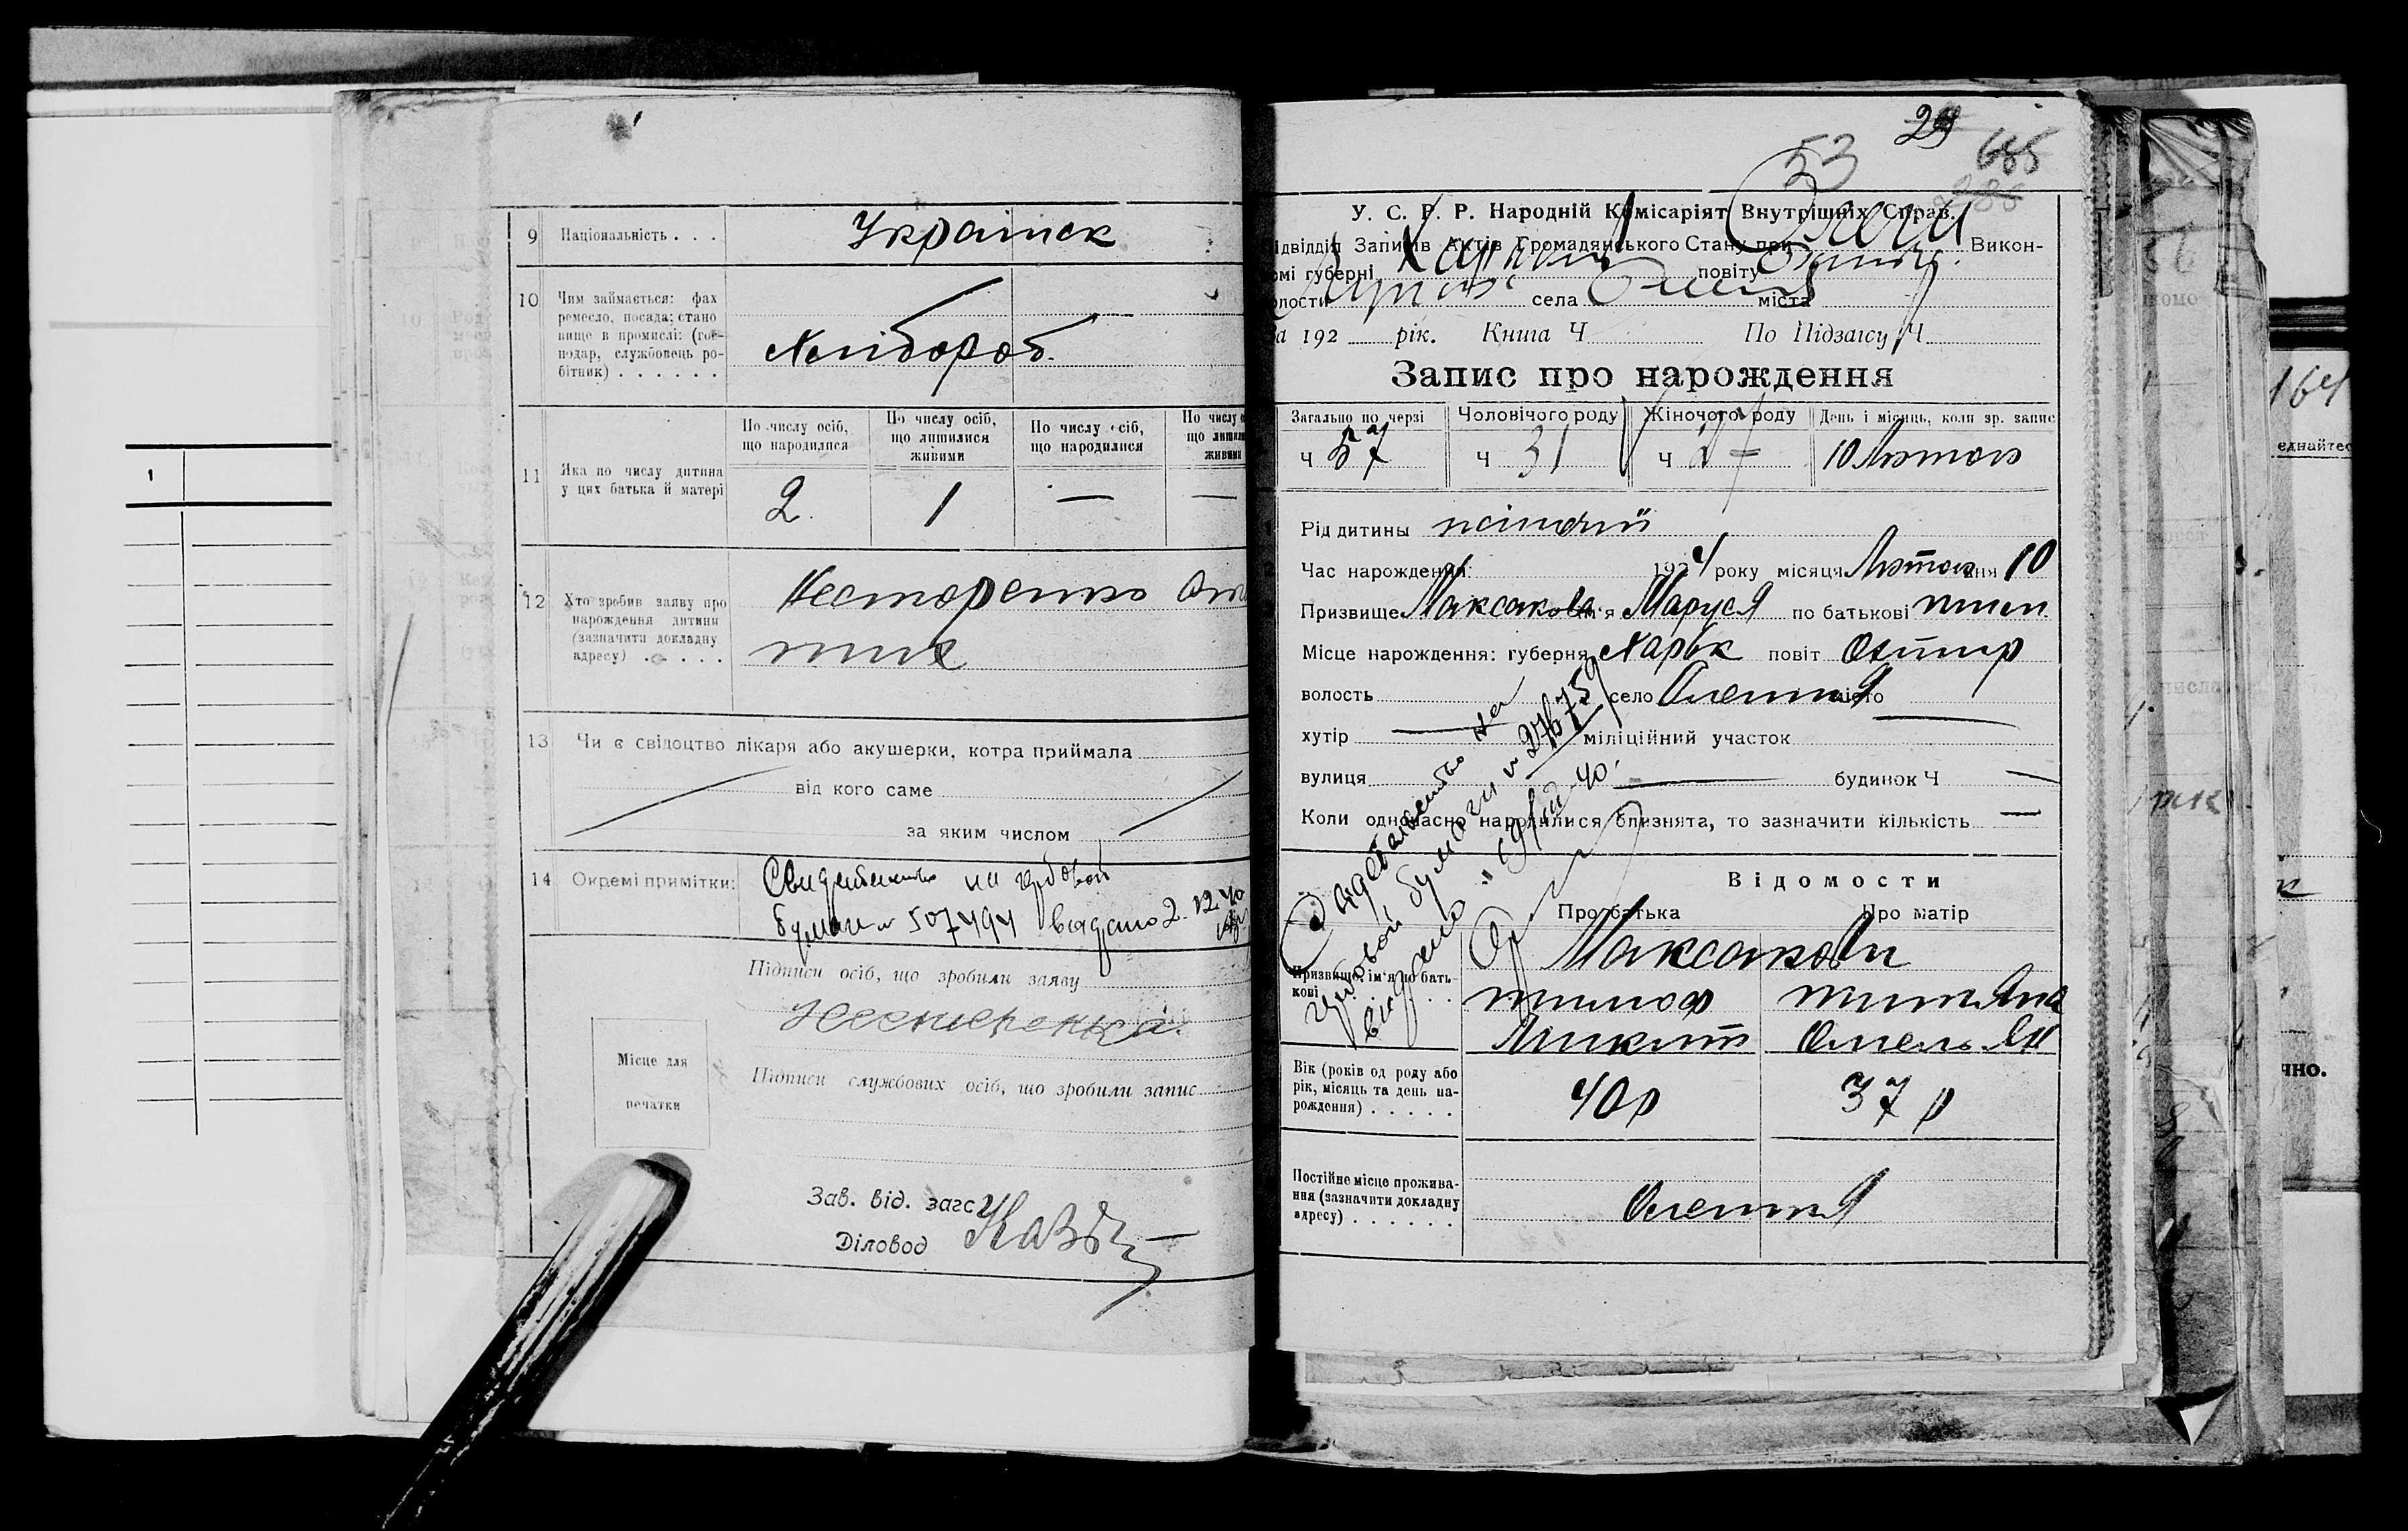 9 Національність . . . Українск
10 Чим займається: фах
ремесло, посада; стано
вище в промислі: (гос-
подар, службовець ро-
бітник) . . . . . .
Хлібороб.
11 Яка по числу дитина
у цих батька й матері
По числу осіб,
що народилися
По числу осіб,
що лишилися
живими
По числу осіб,
що народилися
По числу
що лиши
живими
2. 1 — —
12 Хто зробив заяву про
нарождення дитини
(зазначити докладну
адресу) . . . . .
Несторенко
13 Чи є свідоцтво лікаря або акушерки, котра приймала
від кого саме
за яким числом
14 Окремі примітки:
Свидетельство на гербовой
бумаге № 507494 видано 2.12.40
Підписи осіб, що зробили заяву
Нестеренка.
Місце для
печатки
Підписи службових осіб, що зробили запис
Зав. від. загс
Діловод
29
53
685
286
У. С. Р. Р. Народній Комісаріят Внутрішніх Справ.
ідвідділ Записів Актів Громадянського Стану при Викон-
омі губерні Харков повіту
олости села міста
а 192 рік. Книга Ч По Підзагсу Ч
Запис про нарождення
Загально по черзі
Чоловічого роду
Жіночого роду
День і місяць, коли зр. запис
Ч 57
Ч 31
Ч
10 Лютого
Рід дитины жіночий
Час нарождення: 1924 року місяця Лютого дня 10
Призвище Максакова ім'я Маруся по батькові тим
Місце нарождення: губерня Харьк повіт Охтир
волость село Олешня місто
хутір — міліційний участок
вулиця — будинок Ч —
Коли одночасно народилися близнята, то зазначити кількість —
Свидетельство на
гербовой бумаги № 276759
видено "19/III-40.
Відомости
Про батька
Про матір
Призвище, ім'я по бать-
кові . . . .
Максакови
тимоф
титяна
Микит
Омельян
Вік (років од роду або
рік, місяць та день на-
рождення) . . . . .
40р
37 р
Постійне місце прожива-
ння (зазначити докладну
адресу) . . . . . .
Олешня
1
164
еднайтес
чно.